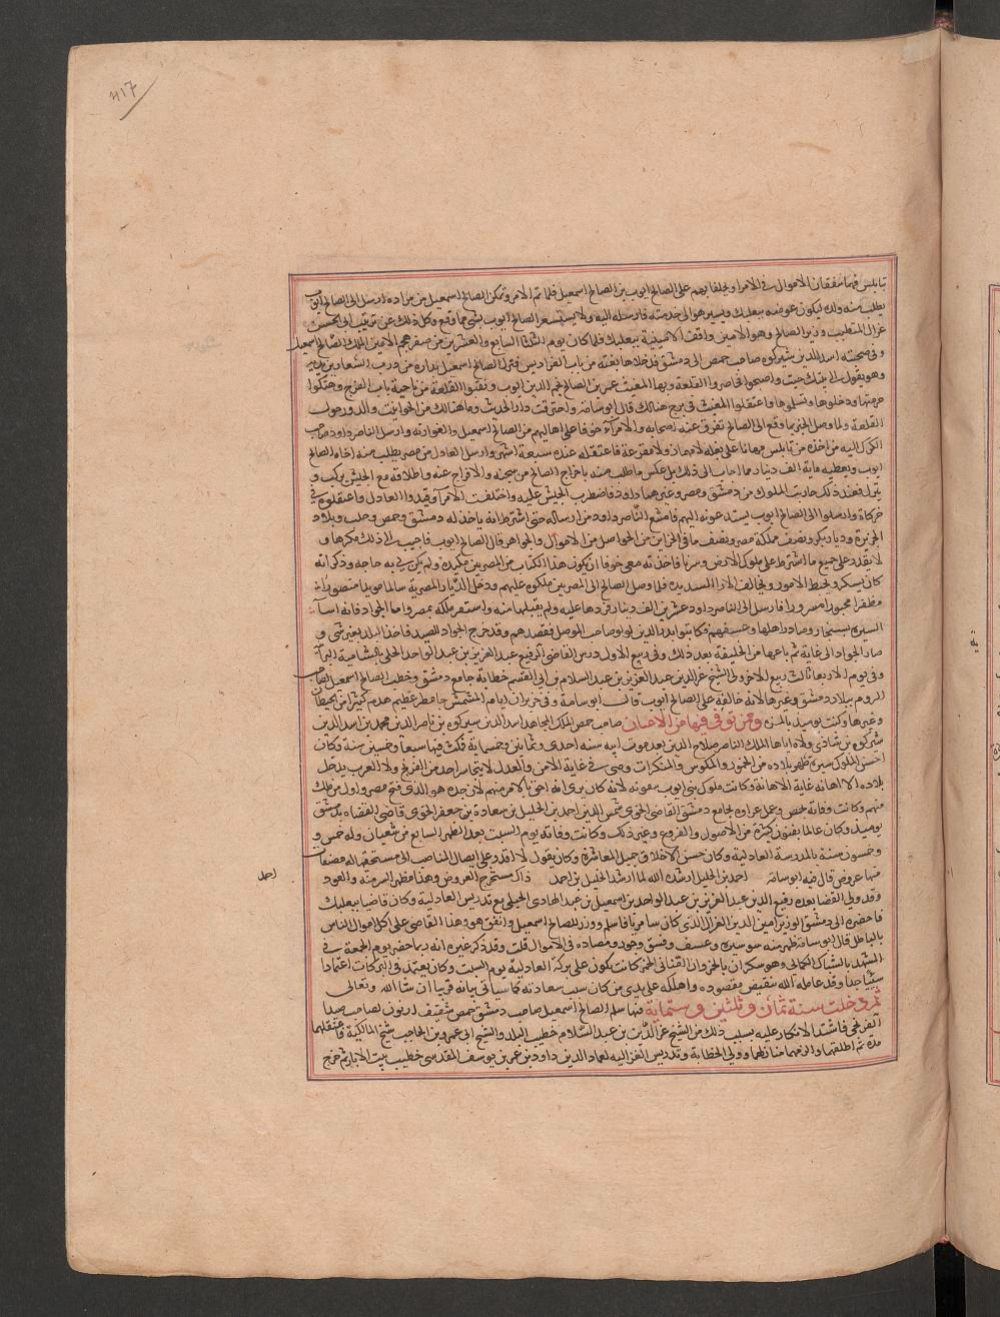 417
بنابلس فيها منفقان الاموال في الامرا ويحلفانهم على الصالح ايوب بن الصالح اسمعيل فلما تم الامر وتمكن الصالح اسمعيل من مراده ارسل الى الصالح ايوب
يطلب منه ولده ليكون عوضه ببعلبك ويسير هو الى خدمته فارسله اليه ولا يستشعر الصالح ايوب بشي مما وقع وكل ذلك عن ترتيب ابي الحسن
غزال المتطبب وزير الصالح وهو الامين واقف الامينية ببعلبك فلما كان يوم الثلثا السابع والعشرين من صفر هجم الملك الصالح اسمعيل
وفي صحبته اسد الدين شيركوه صاحب حمص الى دمشق فدخلاها بغتة من باب الفراديس فنزل الصالح اسمعيل بداره من درب الشعارين
واصبحوا فحاصروا القلعة وبها المغيث عمر بن الصالح نجم الدين ايوب ونقبوا القلعة من ناحية باب الفرج وهتكوا
حرمتها ودخلوها وتسلموها واعتقلوا المغيث في برج هنالك قال ابو شامة واحترقت دار الحديث وما هنالك من الحوانيت والدور حول
القلعة ولما وصل الخبر بما وقع الى الصالح تفرق عنه اصحابه والامرا خوفا على اهاليهم من الصالح اسمعيل وارسل الناصر داود صاحب
الكرك اليه من اخذه من نابلس مهانا على بغلة بلا مهماز ولا مقرعة فاعتقله عنده سبعة اشهر وارسل العادل من مصر يطلب منه اخاه الصالح
ايوب ويعطيه ماية الف دينار فما اجاب الى ذلك بل عكس ما طلب منه باخراج الصالح من سجنه والافراج عنه واطلاقه مع الجيش يركب و
ينزل فعند ذلك حاربت الملوك من دمشق ومصر وغيرهما داود فاضطرب الجيش عليه واختلفت الامرا وقيدوا العادل واعتقلوه في
خركاة وارسلوا الى الصالح ايوب يستدعونه اليهم فامتنع الناصر داود من ارساله حتى اشترط انه ياخذ له دمشق وحمص وحلب وبلاد
الجزيرة وديار بكر ونصف مملكة مصر ونصف ما في الخزاين من الحواصل من الاموال والجواهر قال الصالح ايوب فاجبت الى ذلك مكرها و
لا يقدر على جميع ما اشترط على ملوك الارض وسرنا فاخذته معي خوفا ان يكون هذا الكتاب من المصريين مكيدة ولم يكن لي به حاجة وذكر انه
كان يسكر ويخبط الامور ويخالف الارا السديدة فلما وصل الصالح الى المصريين ملكوه عليهم ودخل الديار المصرية سالما مويدا منصورا
مظفرا محبورا مسرورا فارسل الى الناصر داود عشرين الف دينار فردها عليه ولم يقبلها منه واستقر ملكه بمصر واما الجواد فانه اسا
السيرة بسنجار وصادر اهلها وعسفهم فكاتبوا بدر الدين لولو صاحب الموصل فقصدهم وقد خرج الجواد للصيد فاخذ البلد بغير شي و
صار الجواد الى غاية ثم باعها من الخليفة بعد ذلك وفي ربيع الاول درس القاضي الرفيع عبد العزيز بن عبد الواحد الجيلي بالشامية البرانية
وفي يوم الاربعا ثالث ربيع الاخر ولي الشيخ عز الدين عبد العزيز بن عبد السلام بن ابي القسم خطابة جامع دمشق وخطب الصالح اسمعيل لصاحب
الروم ببلاد دمشق وغيرها لانه حالفه على الصالح ايوب قال ابو شامة وفي حزيران ايام المشمش جا مطر عظيم هدم كثيرا من الحيطان
وغيرها وكنت يوميذ بالمزة وممن توفي فيها من الاعيان صاحب حمص الملك المجاهد اسد الدين شيركوه بن ناصر الدين محمد بن اسد الدين
شيركوه بن شاذي ولاه اياها الملك الناصر صلاح الدين بعد موت ابيه سنة احدى وثمانين وخمسماية فمكث فيها سبعا وخمسين سنة وكان
احسن الملوك سيرة طهر بلاده من الخمور والمكوس والمنكرات وهي في غاية الامن والعدل لا يتجاسر احد من الفرنج ولا العرب يدخل
بلاده الا اهانه غاية الاهانة وكانت ملوك بني ايوب يتقونه لانه كان يرى انه احق بالامر منهم لان جده هو الذي فتح مصر واول من ملك
منهم وكانت وفاته بحمص وعمل عزاوه بجامع دمشق القاضي الخوي شمس الدين احمد بن الخليل بن سعادة بن جعفر الخوي قاضي القضاة بدمشق
يوميذ وكان عالما بفنون كثيرة من الاصول والفروع وغير ذلك وكانت وفاته يوم السبت بعد الظهر السابع من شعبان وله خمس و
خمسون سنة بالمدرسة العادلية وكان حسن الاخلاق جميل المعاشرة وكان يقول لا اقدر على ايصال المناصب الى مستحقها له مصنفات
منها عروض قال فيه ابو شامة احمد بن الخليل ارشده الله لما ارشد الخليل بن احمد ذاك مستخرج العروض وهذا مظهر السر منه والعود
احمد
وقد ولي القضا بعده رفيع الدين عبد العزيز بن عبد الواحد بن اسمعيل بن عبد الهادي الجيلي مع تدريس العادلية وكان قاضيا ببعلبك
فاحضره الى دمشق الوزير امين الدين الغزال الذي كان سامريا فاسلم ووزر للصالح اسمعيل واتفق هو وهذا القاضي على اكل اموال الناس
بالباطل قال ابو شامة ظهر منه سو سيرة وعسف وفسق وجور ومصادرة في الاموال قلت وقد ذكر غيره انه ربما حضر يوم الجمعة في
المشهد بالشباك الكمالي وهو سكران وان القناني الخمر كانت تكون على بركة العادلية يوم السبت وكان يعتمد في التركات اعتمادا
سيئا جدا وقد عامله الله بنقيض مقصوده واهلكه على يدي من كان سبب سعادته كما سياتي بيانه قريبا ان شا الله وتعالى
ثم دخلت سنة ثمان وثلثين وستماية فيها سلم الصالح اسمعيل صاحب دمشق حصن شقيف ارنون لصاحب صيدا
الفرنجي فاشتد الانكار عليه بسبب ذلك من الشيخ عز الدين بن عبد السلام خطيب البلد والشيخ ابي عمرو بن الحاجب شيخ المالكية فاعتقلهما
مدة ثم اطلقهما والزمهما منازلهما وولي الخطابة وتدريس الغزالية لعماد الدين داود بن عمر بن يوسف المقدسي خطيب بيت الابار ثم خرج